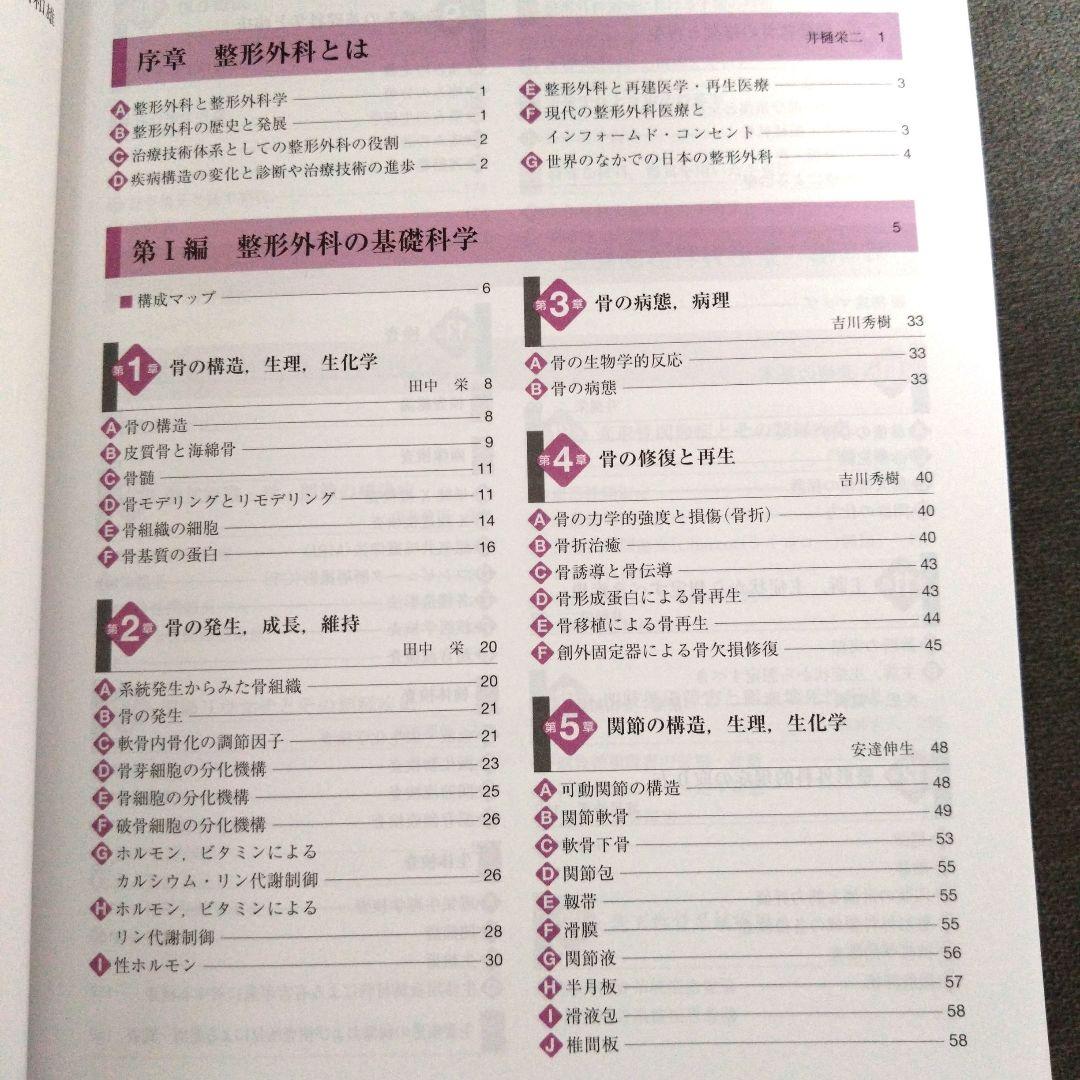 序章 整形外科とは 井樋栄二 1
A 整形外科と整形外科学 1
B 整形外科の歴史と発展 1
C 治療技術体系としての整形外科の役割 2
D 疾病構造の変化と診断や治療技術の進歩 2
E 整形外科と再建医学・再生医療 3
F 現代の整形外科医療と
インフォームド・コンセント 3
G 世界のなかでの日本の整形外科 4
第Ⅰ編 整形外科の基礎科学 5
■ 構成マップ 6
第1章 骨の構造，生理，生化学
田中 栄 8
A 骨の構造 8
B 皮質骨と海綿骨 9
C 骨髄 11
D 骨モデリングとリモデリング 11
E 骨組織の細胞 14
F 骨基質の蛋白 16
第2章 骨の発生，成長，維持
田中 栄 20
A 系統発生からみた骨組織 20
B 骨の発生 21
C 軟骨内骨化の調節因子 21
D 骨芽細胞の分化機構 23
E 骨細胞の分化機構 25
F 破骨細胞の分化機構 26
G ホルモン，ビタミンによる
カルシウム・リン代謝制御 26
H ホルモン，ビタミンによる
リン代謝制御 28
I 性ホルモン 30
第3章 骨の病態，病理
吉川秀樹 33
A 骨の生物学的反応 33
B 骨の病態 33
第4章 骨の修復と再生
吉川秀樹 40
A 骨の力学的強度と損傷（骨折） 40
B 骨折治癒 40
C 骨誘導と骨伝導 43
D 骨形成蛋白による骨再生 43
E 骨移植による骨再生 44
F 創外固定器による骨欠損修復 45
第5章 関節の構造，生理，生化学
安達伸生 48
A 可動関節の構造 48
B 関節軟骨 49
C 軟骨下骨 53
D 関節包 55
E 靱帯 55
F 滑膜 55
G 関節液 56
H 半月板 57
I 滑液包 58
J 椎間板 58